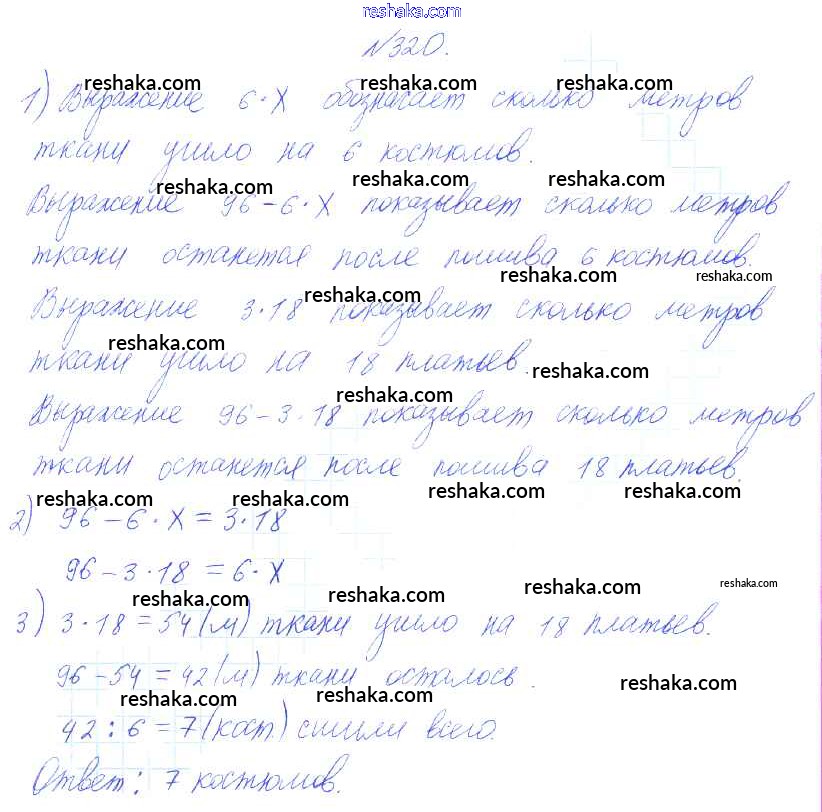 reshaka.com
№320.
reshaka.com reshaka.com reshaka.com
1) Выражение 6·X обозначает сколько метров
ткани ушло на 6 костюмов.
reshaka.com reshaka.com reshaka.com
Выражение 96-6·X показывает сколько метров
ткани останется после пошива 6 костюмов.
reshaka.com reshaka.com reshaka.com
Выражение 3·18 показывает сколько метров
reshaka.com
ткани ушло на 18 платьев.
reshaka.com reshaka.com
Выражение 96-3·18 показывает сколько метров
ткани останется после пошива 18 платьев.
reshaka.com reshaka.com reshaka.com reshaka.com
2) 96-6·X=3·18
96-3·18=6·X
reshaka.com reshaka.com reshaka.com reshaka.com
3) 3·18=54(м) ткани ушло на 18 платьев.
96-54=42(м) ткани осталось.
reshaka.com reshaka.com reshaka.com
42:6=7(кост) сшили всего.
Ответ: 7 костюмов.